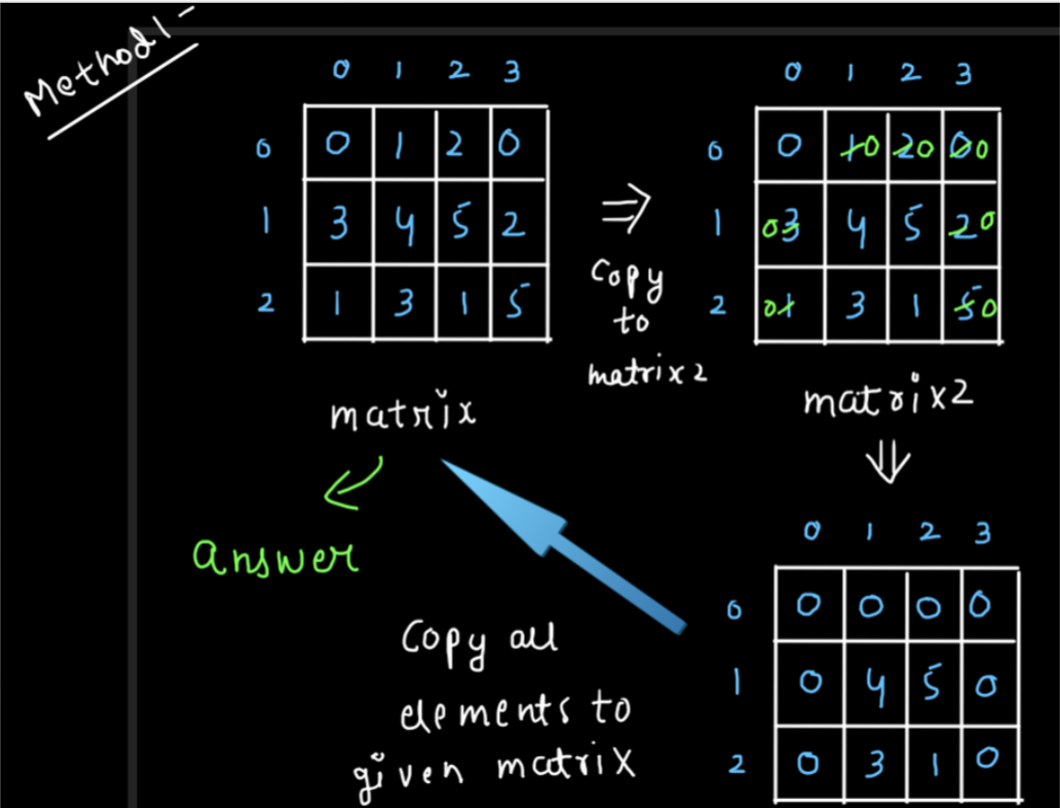 Method 1 -
0 1 2 3
0 0 1 2 0
1 3 4 5 2
2 1 3 1 5
matrix
⇒
Copy
to
matrix 2
0 1 2 3
0 0 10 20 00
1 03 4 5 20
2 01 3 1 50
matrix2
⇓
0 1 2 3
0 0 0 0 0
1 0 4 5 0
2 0 3 1 0
Answer
Copy all
elements to
given matrix